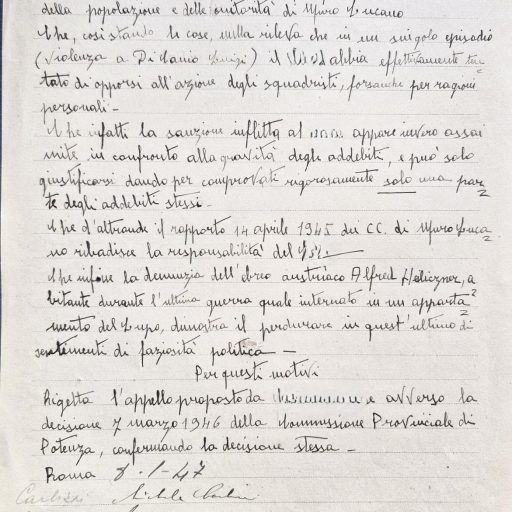 della popolazione e delle autorità di Muro Lucano
Che, così stando le cose, nulla rileva che in un singolo episodio
(violenza a Di Ianio Luigi) il abbia effettivamente ten=
tato di opporsi all'azione degli squadristi, forsanche per ragioni
personali -
Che infatti la sanzione inflitta al appare invero assai
mite in confronto alla gravità degli addebiti, e può solo
giustificarsi dando per comprovati rigorosamente solo una par=
te degli addebiti stessi -
Che d'altronde il rapporto 14 aprile 1945 dei CC. di Muro Luca=
no ribadisce la responsabilità del
Che infine la denunzia dell'ebreo austriaco Alfred, a=
bitante durante l'ultima guerra quale internato in un apparta=
mento del Lupo, dimostra il perdurare in quest'ultimo di
sentimenti di faziosità politica -
Per questi motivi
Rigetta l'appello proposto da avverso la
decisione 7 marzo 1946 della Commissione Provinciale di
Potenza, confermando la decisione stessa -
Roma 8-1-47